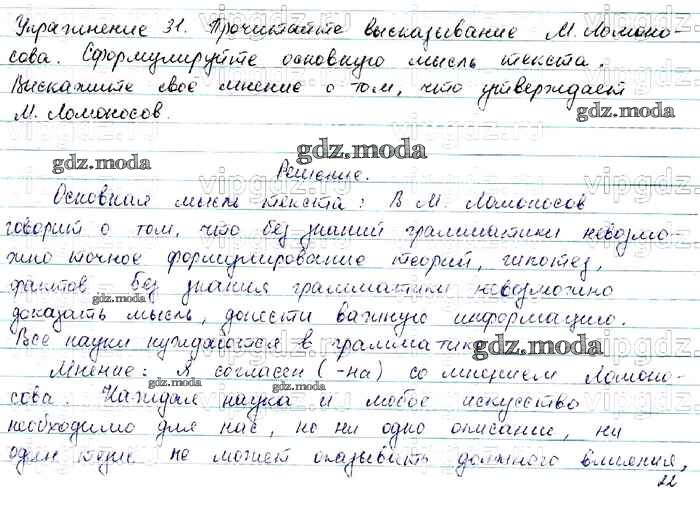 Упражнение 31. Прочитайте высказывание М. Ломоно-
сова. Сформулируйте основную мысль текста.
Выскажите своё мнение о том, что утверждает
М. Ломоносов.
gdz.moda
gdz.moda
Решение.
Основная мысль текста: В М. Ломоносов
говорит о том, что без знаний грамматики невозмо-
жно точное формулирование теорий, гипотез,
фактов без знания грамматики невозможно
gdz.moda
доказать мысль, донести важную информацию.
Все науки нуждаются в грамматике
gdz.moda
Мнение: Я согласен (-на) со мнением Ломоно-
gdz.moda
сова. Каждая наука и любое искусство
gdz.moda
необходимо для нас, но ни одно описание, ни
один не может оказывать должного влияния,
gdz.moda
22